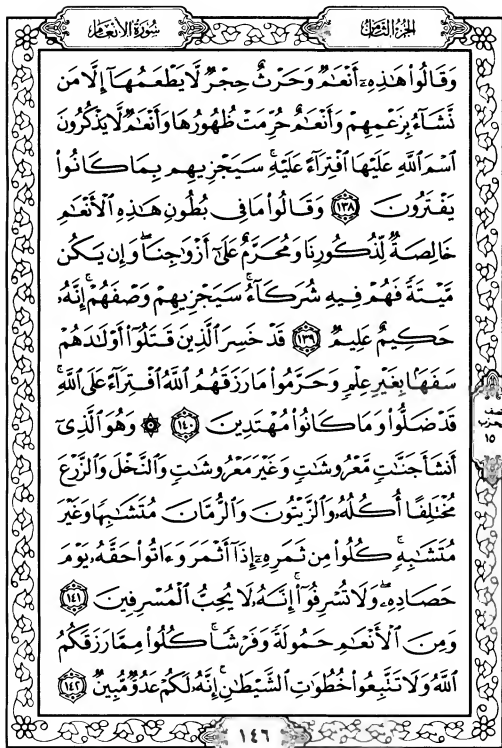 سُورَةُ الأَنْعَامِ
الجُزْءُ الثَّامِنُ
وَقَالُوا۟ هَٰذِهِۦٓ أَنْعَٰمٌ وَحَرْثٌ حِجْرٌ لَّا يَطْعَمُهَآ إِلَّا مَن
نَّشَآءُ بِزَعْمِهِمْ وَأَنْعَٰمٌ حُرِّمَتْ ظُهُورُهَا وَأَنْعَٰمٌ لَّا يَذْكُرُونَ
ٱسْمَ ٱللَّهِ عَلَيْهَا ٱفْتِرَآءً عَلَيْهِ ۚ سَيَجْزِيهِم بِمَا كَانُوا۟
يَفْتَرُونَ ١٣٨ وَقَالُوا۟ مَا فِى بُطُونِ هَٰذِهِ ٱلْأَنْعَٰمِ
خَالِصَةٌ لِّذُكُورِنَا وَمُحَرَّمٌ عَلَىٰٓ أَزْوَٰجِنَا ۖ وَإِن يَكُن
مَّيْتَةً فَهُمْ فِيهِ شُرَكَآءُ ۚ سَيَجْزِيهِمْ وَصْفَهُمْ ۚ إِنَّهُۥ
حَكِيمٌ عَلِيمٌ ١٣٩ قَدْ خَسِرَ ٱلَّذِينَ قَتَلُوٓا۟ أَوْلَٰدَهُمْ
سَفَهًۢا بِغَيْرِ عِلْمٍ وَحَرَّمُوا۟ مَا رَزَقَهُمُ ٱللَّهُ ٱفْتِرَآءً عَلَى ٱللَّهِ ۚ
قَدْ ضَلُّوا۟ وَمَا كَانُوا۟ مُهْتَدِينَ ١٤٠ ۞ وَهُوَ ٱلَّذِىٓ
أَنشَأَ جَنَّٰتٍ مَّعْرُوشَٰتٍ وَغَيْرَ مَعْرُوشَٰتٍ وَٱلنَّخْلَ وَٱلزَّرْعَ
مُخْتَلِفًا أُكُلُهُۥ وَٱلزَّيْتُونَ وَٱلرُّمَّانَ مُتَشَٰبِهًا وَغَيْرَ
مُتَشَٰبِهٍ ۚ كُلُوا۟ مِن ثَمَرِهِۦٓ إِذَآ أَثْمَرَ وَءَاتُوا۟ حَقَّهُۥ يَوْمَ
حَصَادِهِۦ ۖ وَلَا تُسْرِفُوٓا۟ ۚ إِنَّهُۥ لَا يُحِبُّ ٱلْمُسْرِفِينَ ١٤١
وَمِنَ ٱلْأَنْعَٰمِ حَمُولَةً وَفَرْشًا ۚ كُلُوا۟ مِمَّا رَزَقَكُمُ
ٱللَّهُ وَلَا تَتَّبِعُوا۟ خُطُوَٰتِ ٱلشَّيْطَٰنِ ۚ إِنَّهُۥ لَكُمْ عَدُوٌّ مُّبِينٌ ١٤٢
نصف
الحزب
١٥
١٤٦